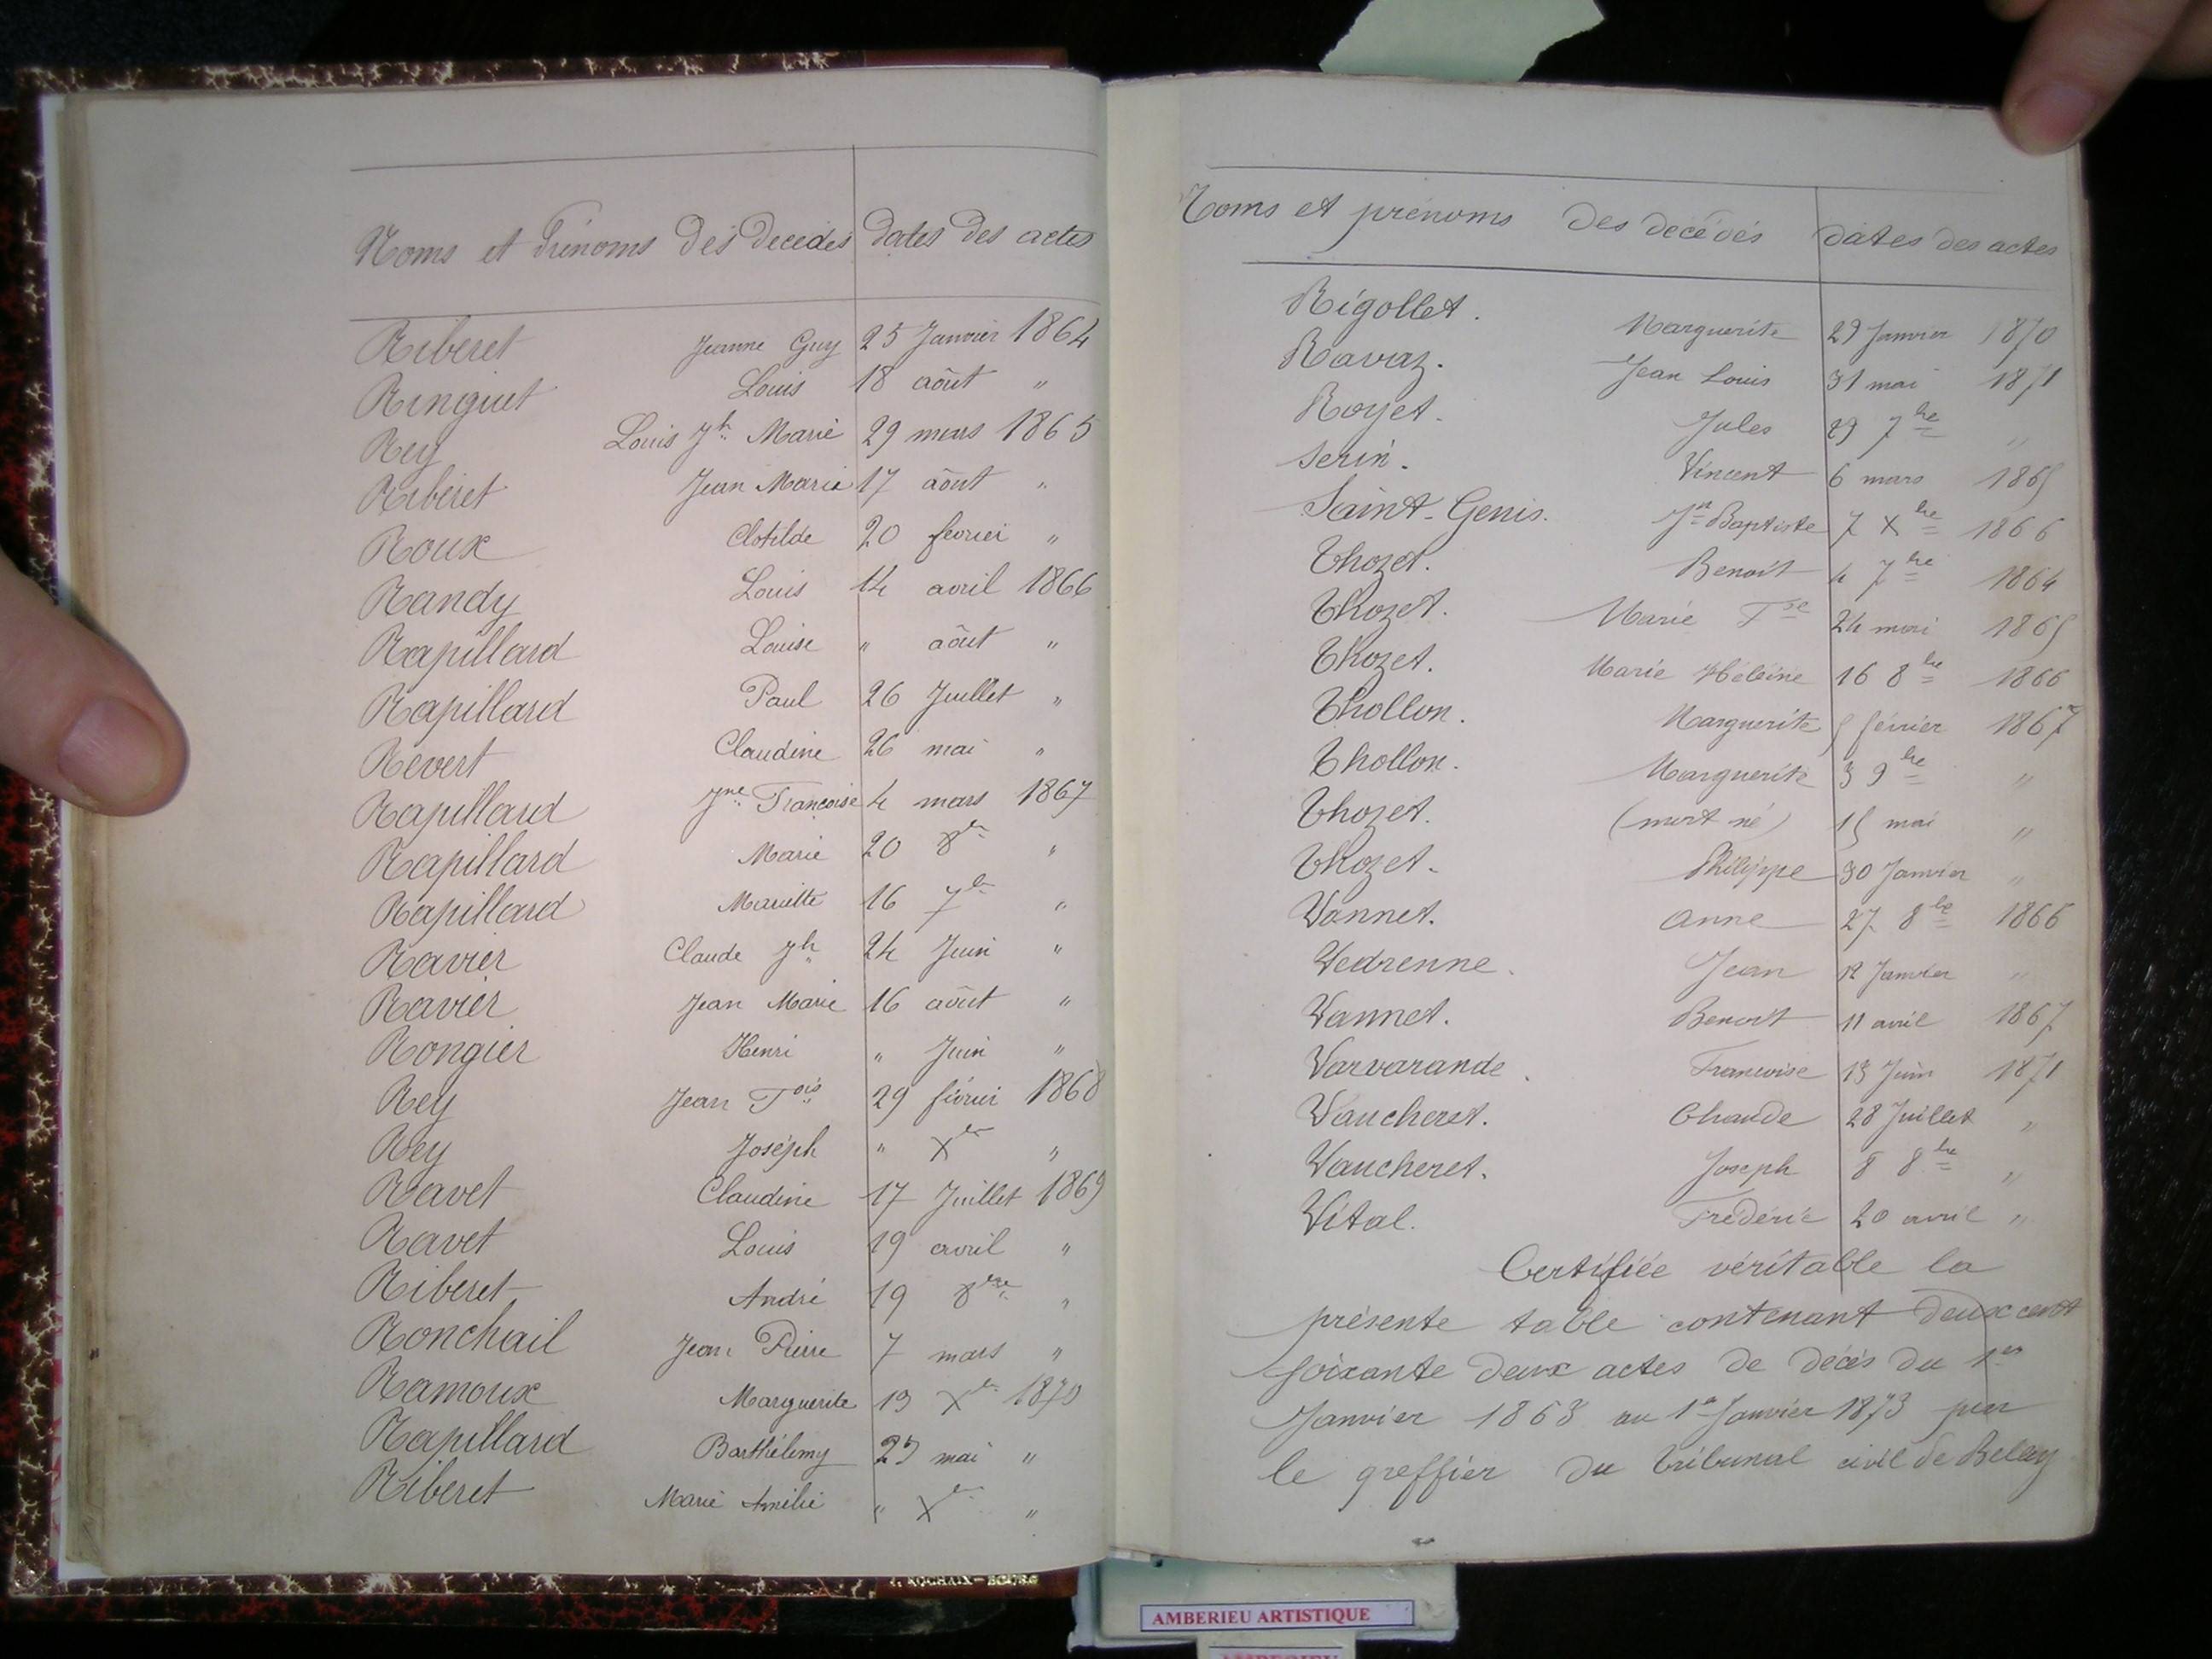 Noms et Prénoms des décédés dates des actes
Riberet Jeanne Guy 25 Janvier 1864
Ringuet Louis 18 août "
Rey Louis Jh Marie 29 mars 1865
Riberet Jean Marie 17 août "
Roux Clotilde 20 fevrier "
Randy Louis 14 avril 1866
Rapillard Louise " août "
Rapillard Paul 26 Juillet "
Revert Claudine 26 mai "
Rapillard Jne Françoise 4 mars 1867
Rapillard Marie 20 8bre "
Rapillard Mariette 16 7bre "
Ravier Claude Jh 24 Juin "
Ravier Jean Marie 16 août "
Rongier Henri " Juin "
Rey Jean Fois 29 févrie 1868
Rey Joséph " Xbre "
Ravet Claudine 17 Juillet 1869
Ravet Louis 19 avril "
Riberet André 19 8bre "
Ronchail Jean Pierre 7 mars "
Ramoux Marguerite 13 Xbre 1870
Rapillard Barthélemy mai "
Riberet Marie Amélie " Xbre "
Noms et prénoms des decédés dates des actes
Rigollet. Marguerite 29 Janvier 1870
Ravaz. Jean Louis 31 mai 1871
Royet. Jules 29 7bre "
Serin. Vincent 6 mars 1865
Saint-Genis. Jn Baptiste 7 Xbre 1866
Thozet. Benoit 4 7bre 1864
Thozet. Marie Fse 24 mai 1865
Thozet. Marie Héleine 16 8bre 1866
Thollon. Marguerite 5 février 1867
Thollon. Marguerite 3 9bre "
Thozet. (mort né) 15 mai "
Thozet. Philippe 30 Janvier "
Vannet. Anne 27 8bre 1866
Vedrenne. Jean 12 Janvier "
Vannet. Benoit 11 avril 1867
Varvarande. Francoise 13 Juin 1871
Vaucheret. Claude 28 Juillet "
Vaucheret. Joseph 8 8bre "
Vital. Frédéric 20 avril "
Certifiée véritable la
présente table contenant deux cent
soixante deux actes de décès du 1er
Janvier 1863 au 1er Janvier 1873 par
le greffier du tribunal civil de Belley
AMBERIEU ARTISTIQUE
AMBERIEU